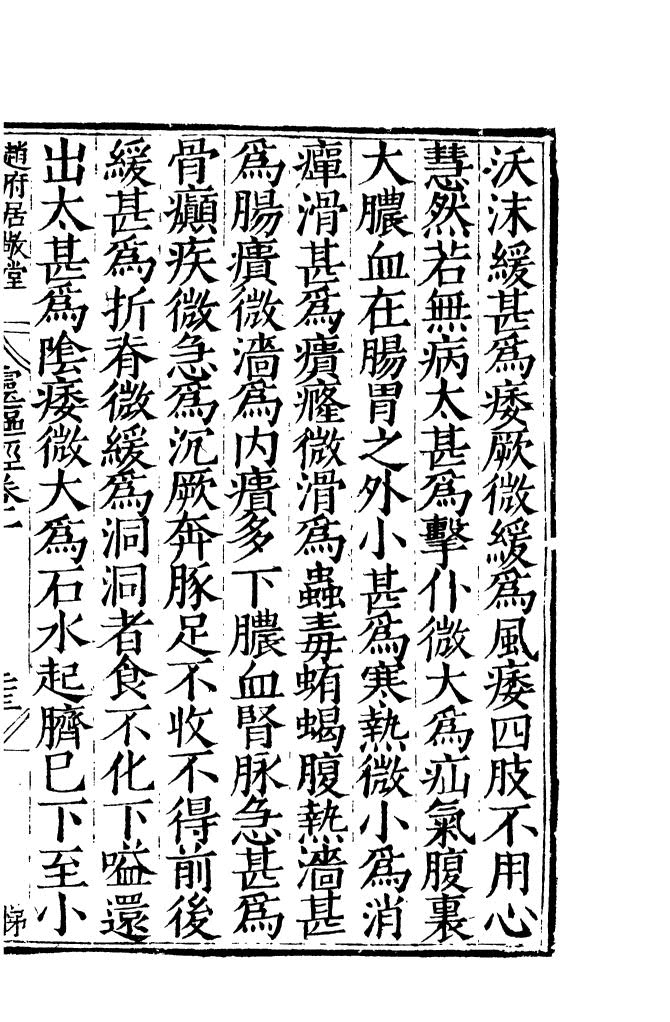 沃沫緩甚爲痿厥微緩爲風痿四肢不用心
慧然若無病太甚爲擊仆微大爲疝氣腹裏
大膿血在腸胃之外小甚爲寒熱微小爲消
癉滑甚爲㿉癃微滑爲蟲毒蛕蝎腹熱濇甚
爲腸㿉微濇爲内㿉多下膿血腎脉急甚爲
骨癲疾微急爲沉厥奔豚足不收不得前後
緩甚爲折脊微緩爲洞洞者食不化下嗌還
出太甚爲陰痿微大爲石水起臍巳下至小
趙府居敬堂 靈樞經卷二